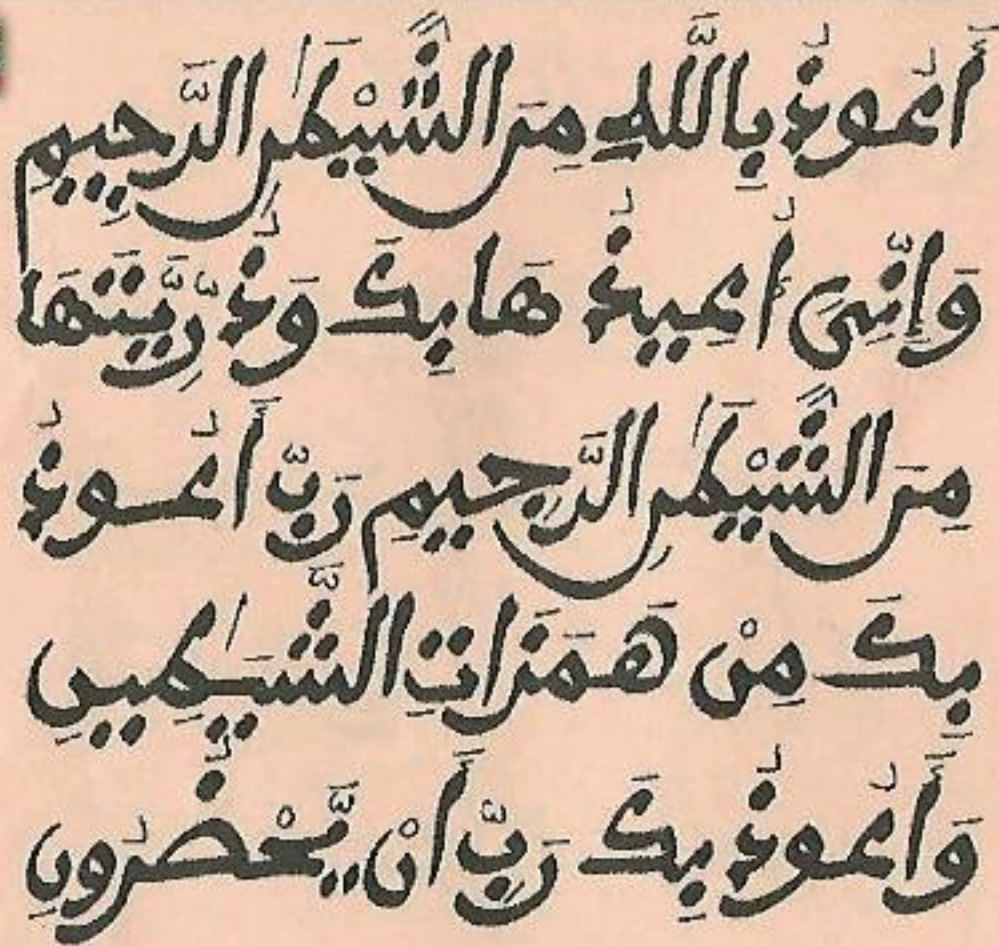 أَعُوذُ بِاللَّهِ مِنَ الشَّيْطَٰنِ الرَّجِيمِ
وَإِنِّىَ أُعِيذُ هَا بِكَ وَذُرِّيَّتَهَا
مِنَ الشَّيْطَٰنِ الرَّجِيمِ رَبِّ أَعُوذُ
بِكَ مِنْ هَمَزَاتِ الشَّيَٰطِينِ
وَأَعُوذُ بِكَ رَبِّ أَنْ يَّحْضُرُونِ